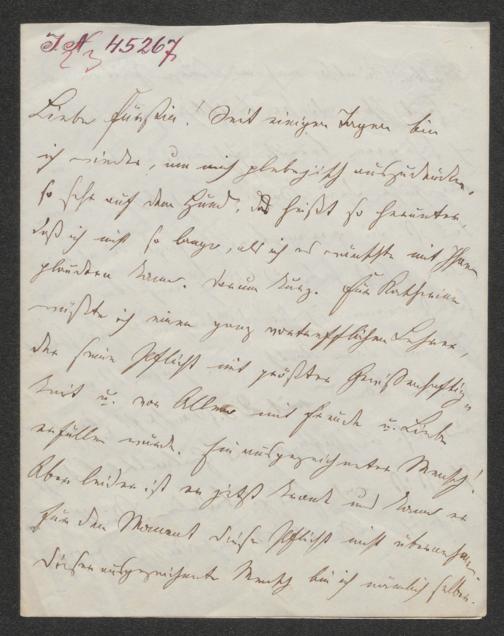 I. N. 45267
Liebe Fürstin! Seit einigen Tagen bin
ich wieder, um mich plebejisch auszudrücken,
so sehr auf dem Hund, das heißt so herunter,
daß ich nicht so lange, als ich es wünschte mit Ihnen
plaudern kann. Darum kurz. Für Katharina
wüßte ich einen ganz vortrefflichen Lehrer,
der seine Pflicht mit größter Gewissenhaftig-
keit u. vor Allem mit Freude u. Liebe
erfüllen würde. Ein ausgezeichneter Mensch!
Aber leider ist er jetzt krank und kann er
für den Moment diese Pflicht nicht übernehmen
Dieser ausgezeichnete Mensch bin ich nämlich selber.